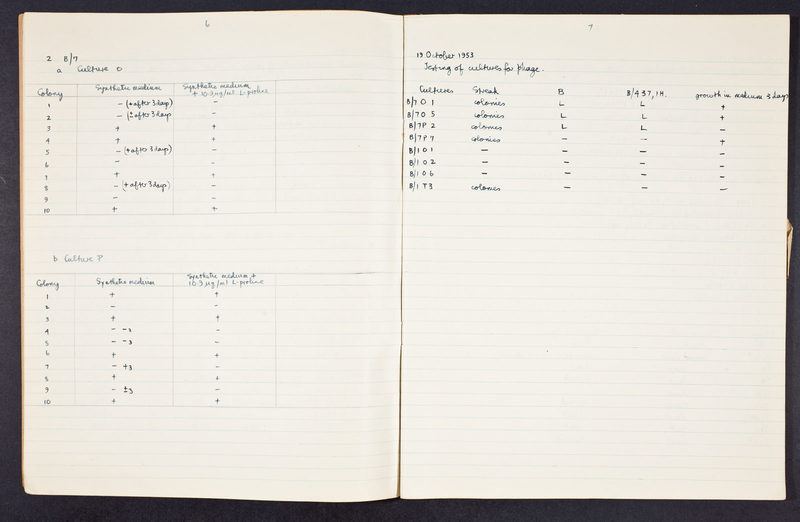 6
2 B/7
a Culture O
Colony Synthetic medium Synthetic medium + 10.9 µg/ml L-proline
1 – (+ after 3 days) –
2 – (± after 3 days) –
3 + +
4 + +
5 – (+ after 3 days) –
6 – –
7 + +
8 – (+ after 3 days) –
9 – –
10 + +
b Culture P
Colony Synthetic medium Synthetic medium + 10.9 µg/ml L-proline
1 + +
2 – –
3 + +
4 – –3 –
5 – –3 –
6 + +
7 – +3 –
8 + +
9 – ±3 –
10 + +
7
19 October 1953
Testing of cultures for phage.
Cultures Streak B B/4 S7, 1H. growth in medium 3 days
B/7 O 1 colonies L L +
B/7 O 5 colonies L L +
B/7P 2 colonies L L –
B/7P 7 colonies – – +
B/1 O 1 – – – –
B/1 O 2 – – – –
B/1 O 6 – – – –
B/1 T3 colonies – – –